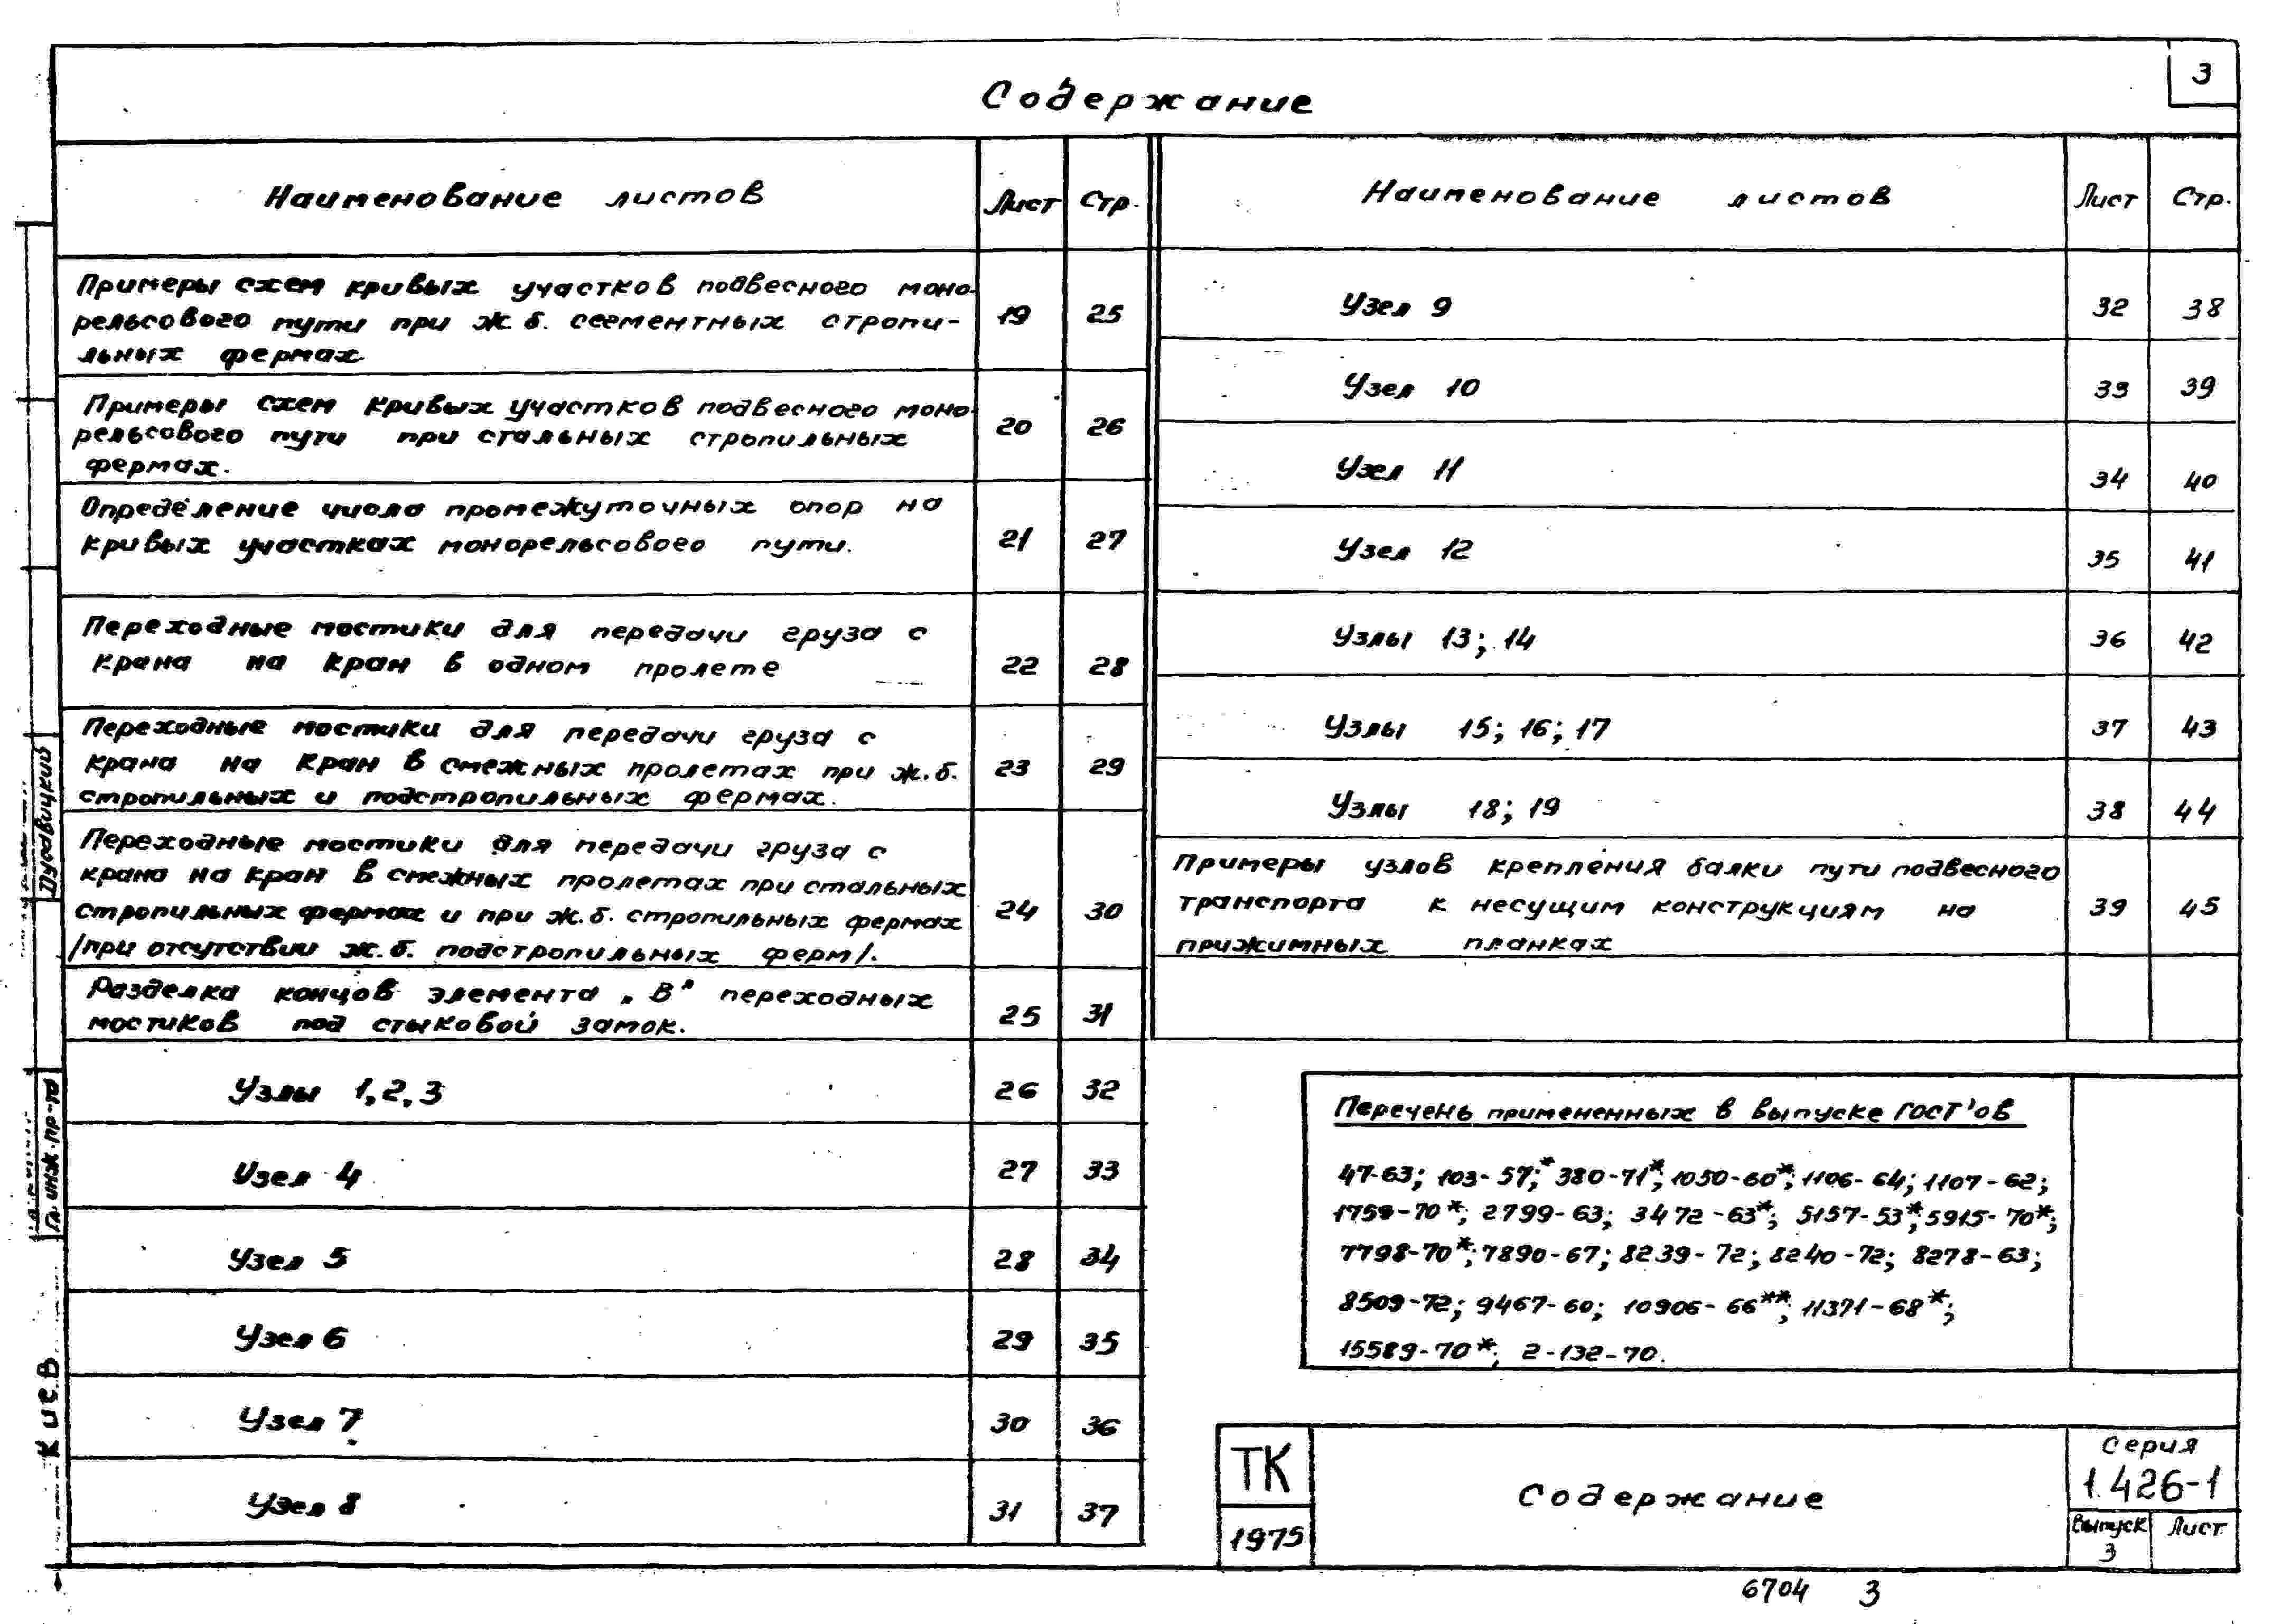 3
Содержание
Наименование листов Лист Стр.
Примеры схем кривых участков подвесного моно-
рельсового пути при ж.б. сегментных стропи-
льных фермах 19 25
Примеры схем кривых участков подвесного моно-
рельсового пути при стальных стропильных
фермах. 20 26
Определение числа промежуточных опор на
кривых участках монорельсового пути. 21 27
Переходные мостики для передачи груза с
крана на кран в одном пролете 22 28
Переходные мостики для передачи груза с
крана на кран в смежных пролетах при ж.б.
стропильных и подстропильных фермах. 23 29
Переходные мостики для передачи груза с
крана на кран в смежных пролетах при стальных
стропильных фермах и при ж.б. стропильных фермах
/при отсутствии ж.б. подстропильных ферм/. 24 30
Разделка концов элемента „В" переходных
мостиков под стыковой замок. 25 31
Узлы 1,2,3 26 32
Узел 4 27 33
Узел 5 28 34
Узел 6 29 35
Узел 7 30 36
Узел 8 31 37
Наименование листов Лист Стр.
Узел 9 32 38
Узел 10 33 39
Узел 11 34 40
Узел 12 35 41
Узлы 13; 14 36 42
Узлы 15; 16; 17 37 43
Узлы 18; 19 38 44
Примеры узлов крепления балки пути подвесного
транспорта к несущим конструкциям на
прижимных планках 39 45
Перечень примененных в выпуске ГОСТ'ов
47-63; 103-57;* 380-71*; 1050-60*; 1106-64; 1107-62;
1759-70*; 2799-63; 3472-63*; 5157-53*; 5915-70*;
7798-70*; 7890-67; 8239-72; 8240-72; 8278-63;
8509-72; 9467-60; 10906-66**; 11371-68*;
15589-70*; 2-132-70.
ТК
1975
Содержание
Серия
1.426-1
Выпуск Лист
3
6704 3
Гл. инж. пр-та
Киев